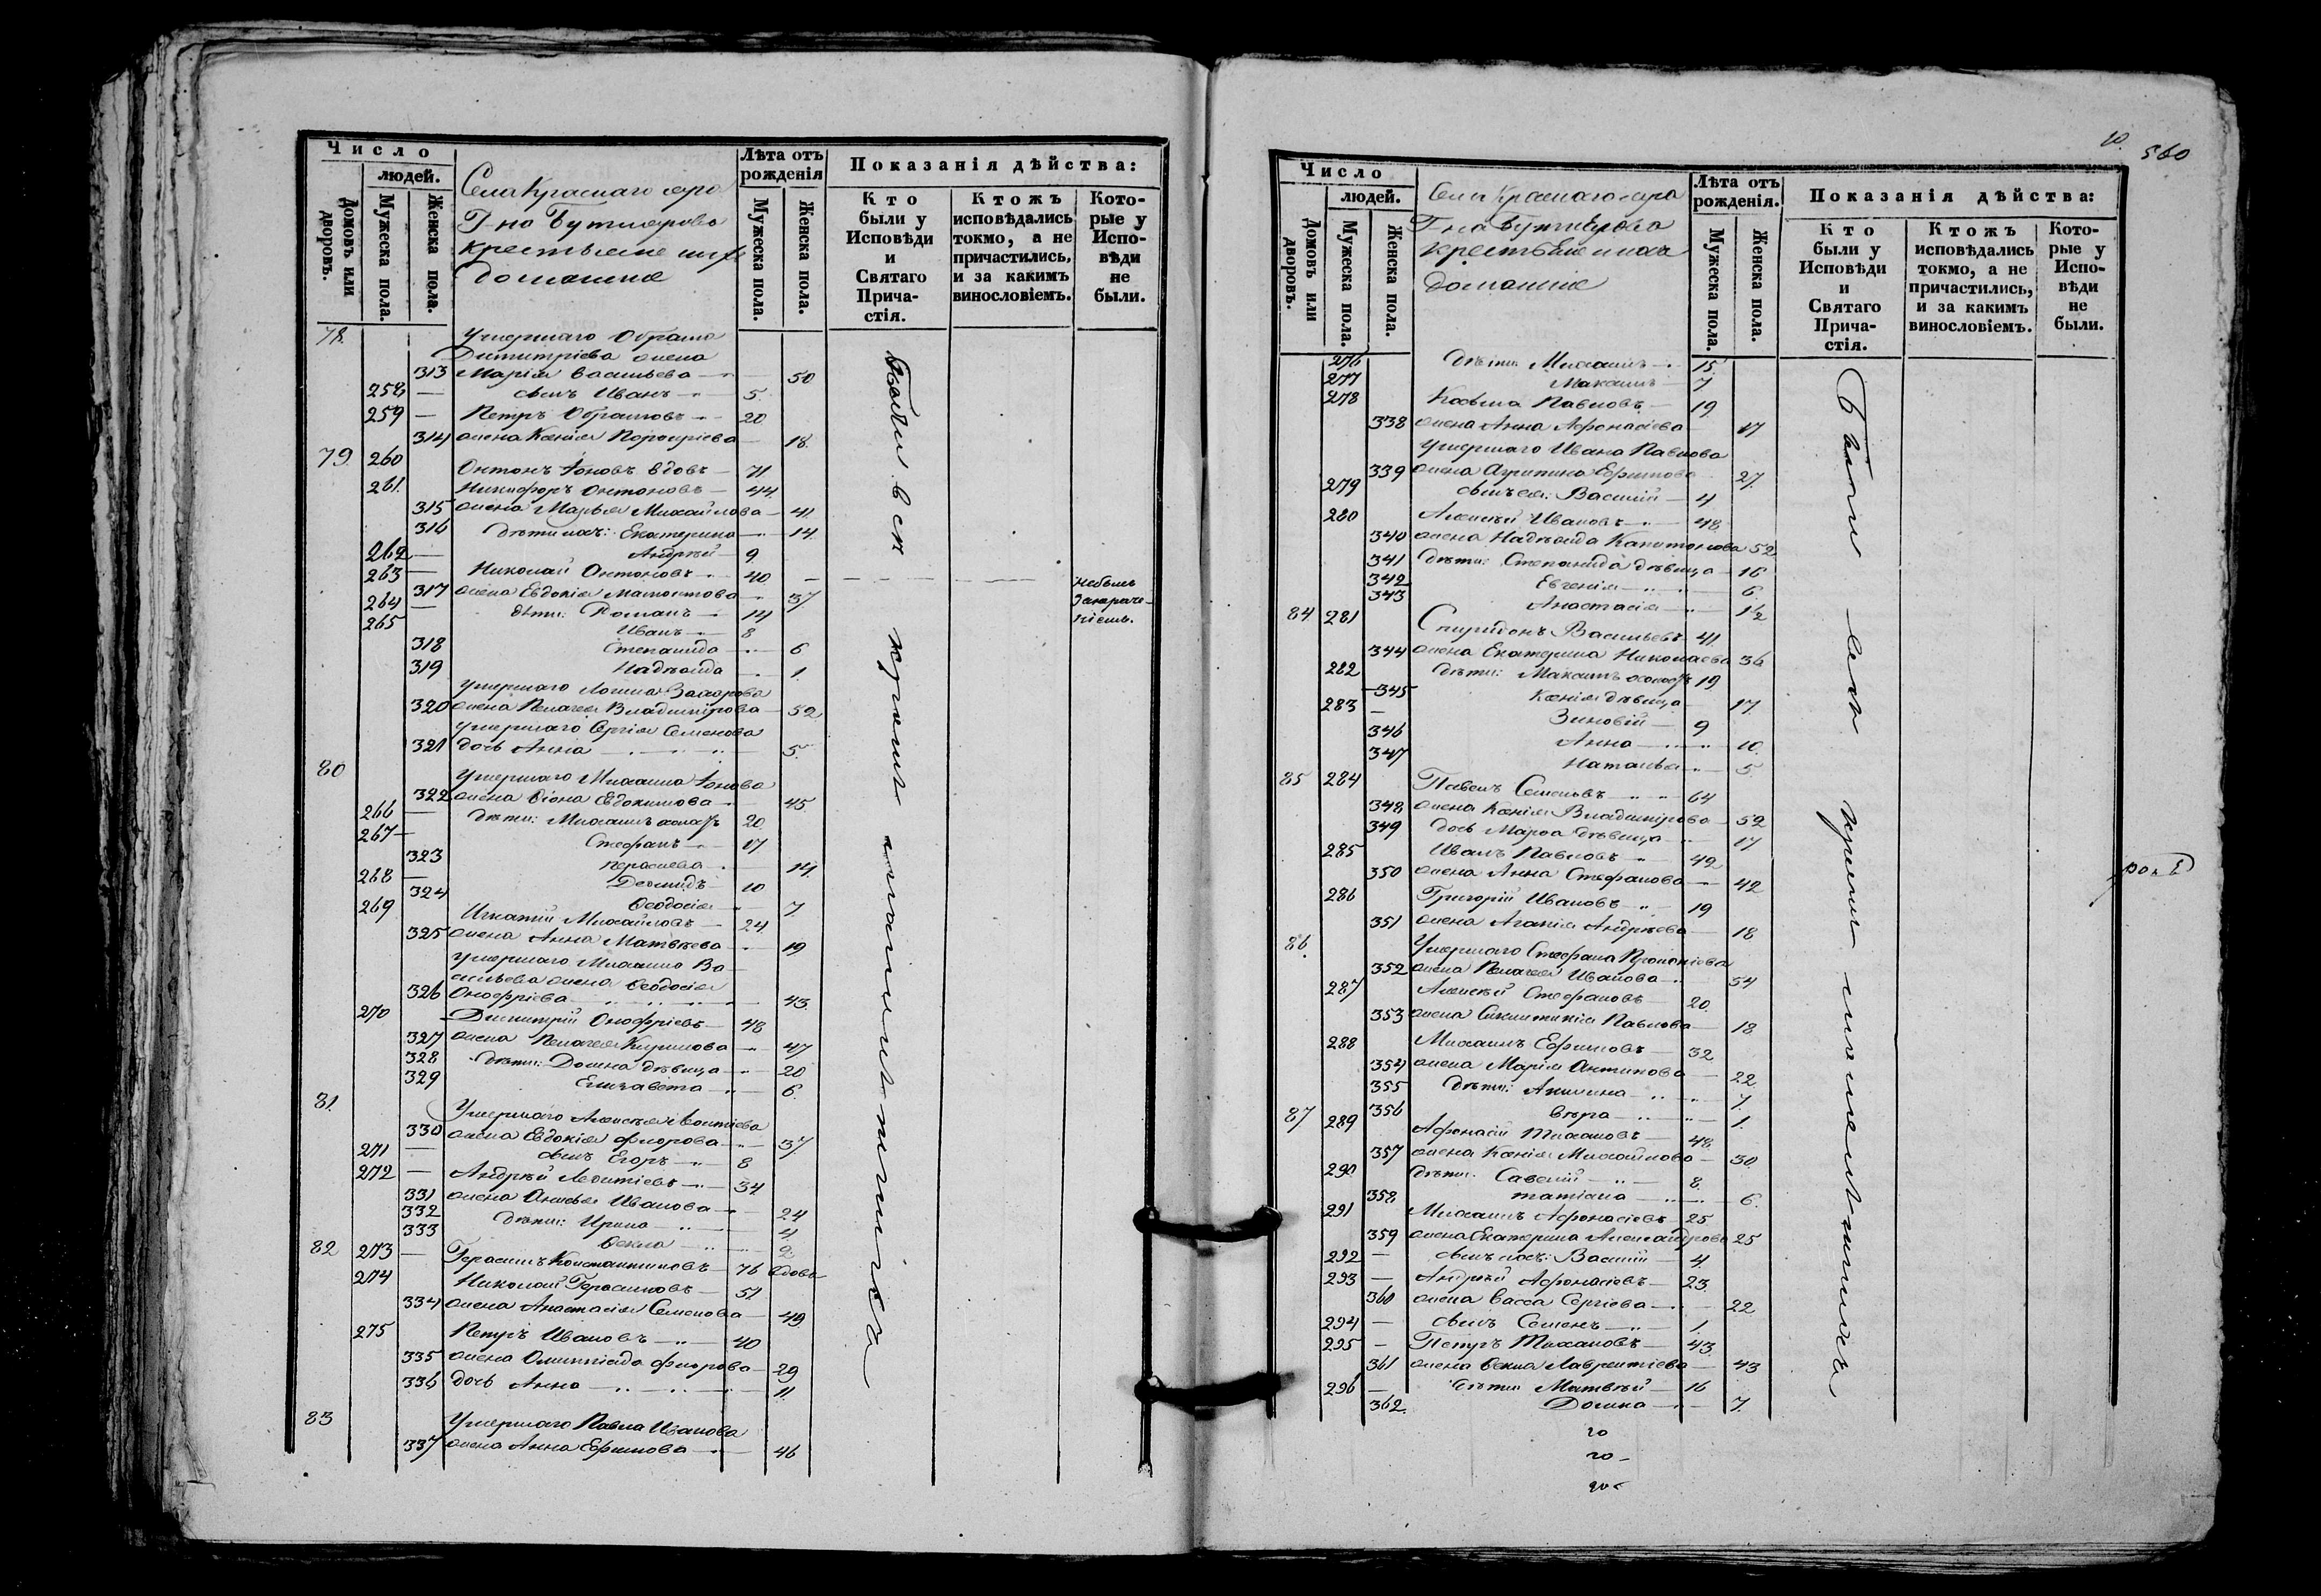 Число
людей.
Домовъ или дворовъ.
Мужеска пола.
Женска пола.
Села Краснаго
Г-на Бутлерова
крестьяне ихъ
домашние
Лѣта отъ рожденія
Мужеска пола.
Женска пола.
Показанія дѣйства:
Кто были у Исповѣди и Святаго Причастія.
Ктожъ исповѣдались токмо, а не причастились, и за какимъ винословіемъ.
Которые у Исповѣди не были.
78 Умершаго
Димитріева жена
313 Марія Васильева 50
258 сынъ Иванъ 5
259 Петръ 20
314 жена Ксенія Порфиріева 18
79 260 Антонъ Іоновъ вдовъ 71
261 Никифоръ Антоновъ 44
315 жена Марья Михайлова 41
316 дѣти ихъ: Екатерина 14
262 Андрѣй 9
263 Николай Антоновъ 40
317 жена Евдокія 37
264 дѣти: Романъ 14
265 Иванъ 8
318 Степанида 6
319 Надѣжда 1
умершаго
320 жена Пелагея Владимірова 52
умершаго Сергія Семенова
321 дочь Анна 5
80 Умершаго Михаила Іонова
322 жена Евдокимова 45
266 дѣти: Михаилъ холостъ 20
267 Стефанъ 17
323 14
268 Деомидъ 10
324 Ѳеодосія 7
269 Игнатій Михайловъ 24
325 жена Анна Матвѣева 19
умершаго Михаила Ва-
сильева жена Ѳеодосія
326 Онофріева 43
270 Димитрій Онофріевъ 48
327 жена Пелагея Кирилова 47
328 дѣти: Домна дѣвица 20
329 Елизавета 6
81 Умершаго Алексѣя Леонтіева
330 жена Евдокія Флорова 37
271 сынъ Егоръ 8
272 Андрѣй Леонтіевъ 34
331 жена Анисья Иванова 24
332 дѣти: Ирина 4
333 Ѳекла 2
82 273 Герасимъ Константиновъ 76 вдовъ
274 Николай Герасимовъ 51
334 жена Анастасія Семенова 49
275 Петръ Ивановъ 40
335 жена Олимпіада Флорова 29
336 дочь Анна 11
83 Умершаго Павла Иванова
337 жена Анна Ефимова 46
Были вси
кромѣ
небылъ
10
560
Число
людей.
Домовъ или дворовъ.
Мужеска пола.
Женска пола.
Села Краснаго
Г-на Бутлерова
крестьяне и ихъ
домашніе
Лѣта отъ рожденія.
Мужеска пола.
Женска пола.
Показанія дѣйства:
Кто были у Исповѣди и Святаго Причастія.
Ктожъ исповѣдались токмо, а не причастились, и за какимъ винословіемъ.
Которые у Исповѣди не были.
276 дѣти: Михаилъ 15
277 Максимъ 7
278 Косьма Павловъ 19
338 жена Анна Афонасіева 17
Умершаго Ивана Павлова
339 жена Агрипина Ефимова 27
279 сынъ ея: Василій 4
280 Алексѣй Ивановъ 48
340 жена Надѣжда Капитонова 52
341 дѣти: Степанида дѣвица 16
342 Евгенія 6
343 Анастасія 1/2
84 281 Спиридонъ Васильевъ 41
344 жена Екатерина Николаева 36
282 дѣти: Максимъ холостъ 19
345 Ксенія дѣвица 17
283 Зиновій 9
346 Анна 10
347 Наталья 5
85 284 Павелъ Семеновъ 64
348 жена Ксенія Владимірова 52
349 дочь Марѳа дѣвица 17
285 Иванъ Павловъ 42
350 жена Анна Стефанова 42
286 Григорій Ивановъ 19
351 жена Агапія Андрѣева 18
86 Умершаго Стефана Прокопіева
352 жена Пелагея Иванова 54
287 Алексѣй Стефановъ 20
353 жена Павлова 18
288 Михаилъ Ефимовъ 32
354 жена Марія Антипова 22
355 дѣти: Акилина 7
356 Вѣра 1
87 289 Афонасій Тихановъ 48
357 жена Ксенія Михайлова 30
290 дѣти: Савелій 8
358 татіана 6
291 Михаилъ Афонасіевъ 25
359 жена Екатерина Александрова 25
292 сынъ ихъ: Василій 4
293 Андрѣй Афонасіевъ 23
360 жена Васса Сергіева 22
294 сынъ Семенъ 1
295 Петръ Тихановъ 43
361 жена Ѳекла Лаврентіева 43
296 дѣти: Матвѣй 16
362 Домна 7
Были вси кромѣ